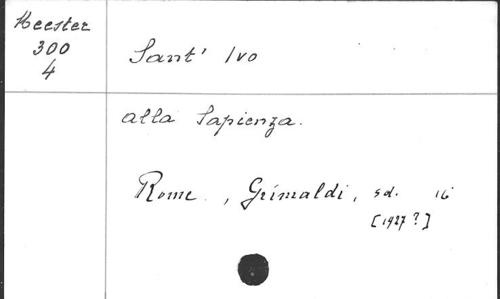 Meester
300
4
Sant' Ivo
alla Sapienza.
Rome., Grimaldi, sd. 16
[1927?]